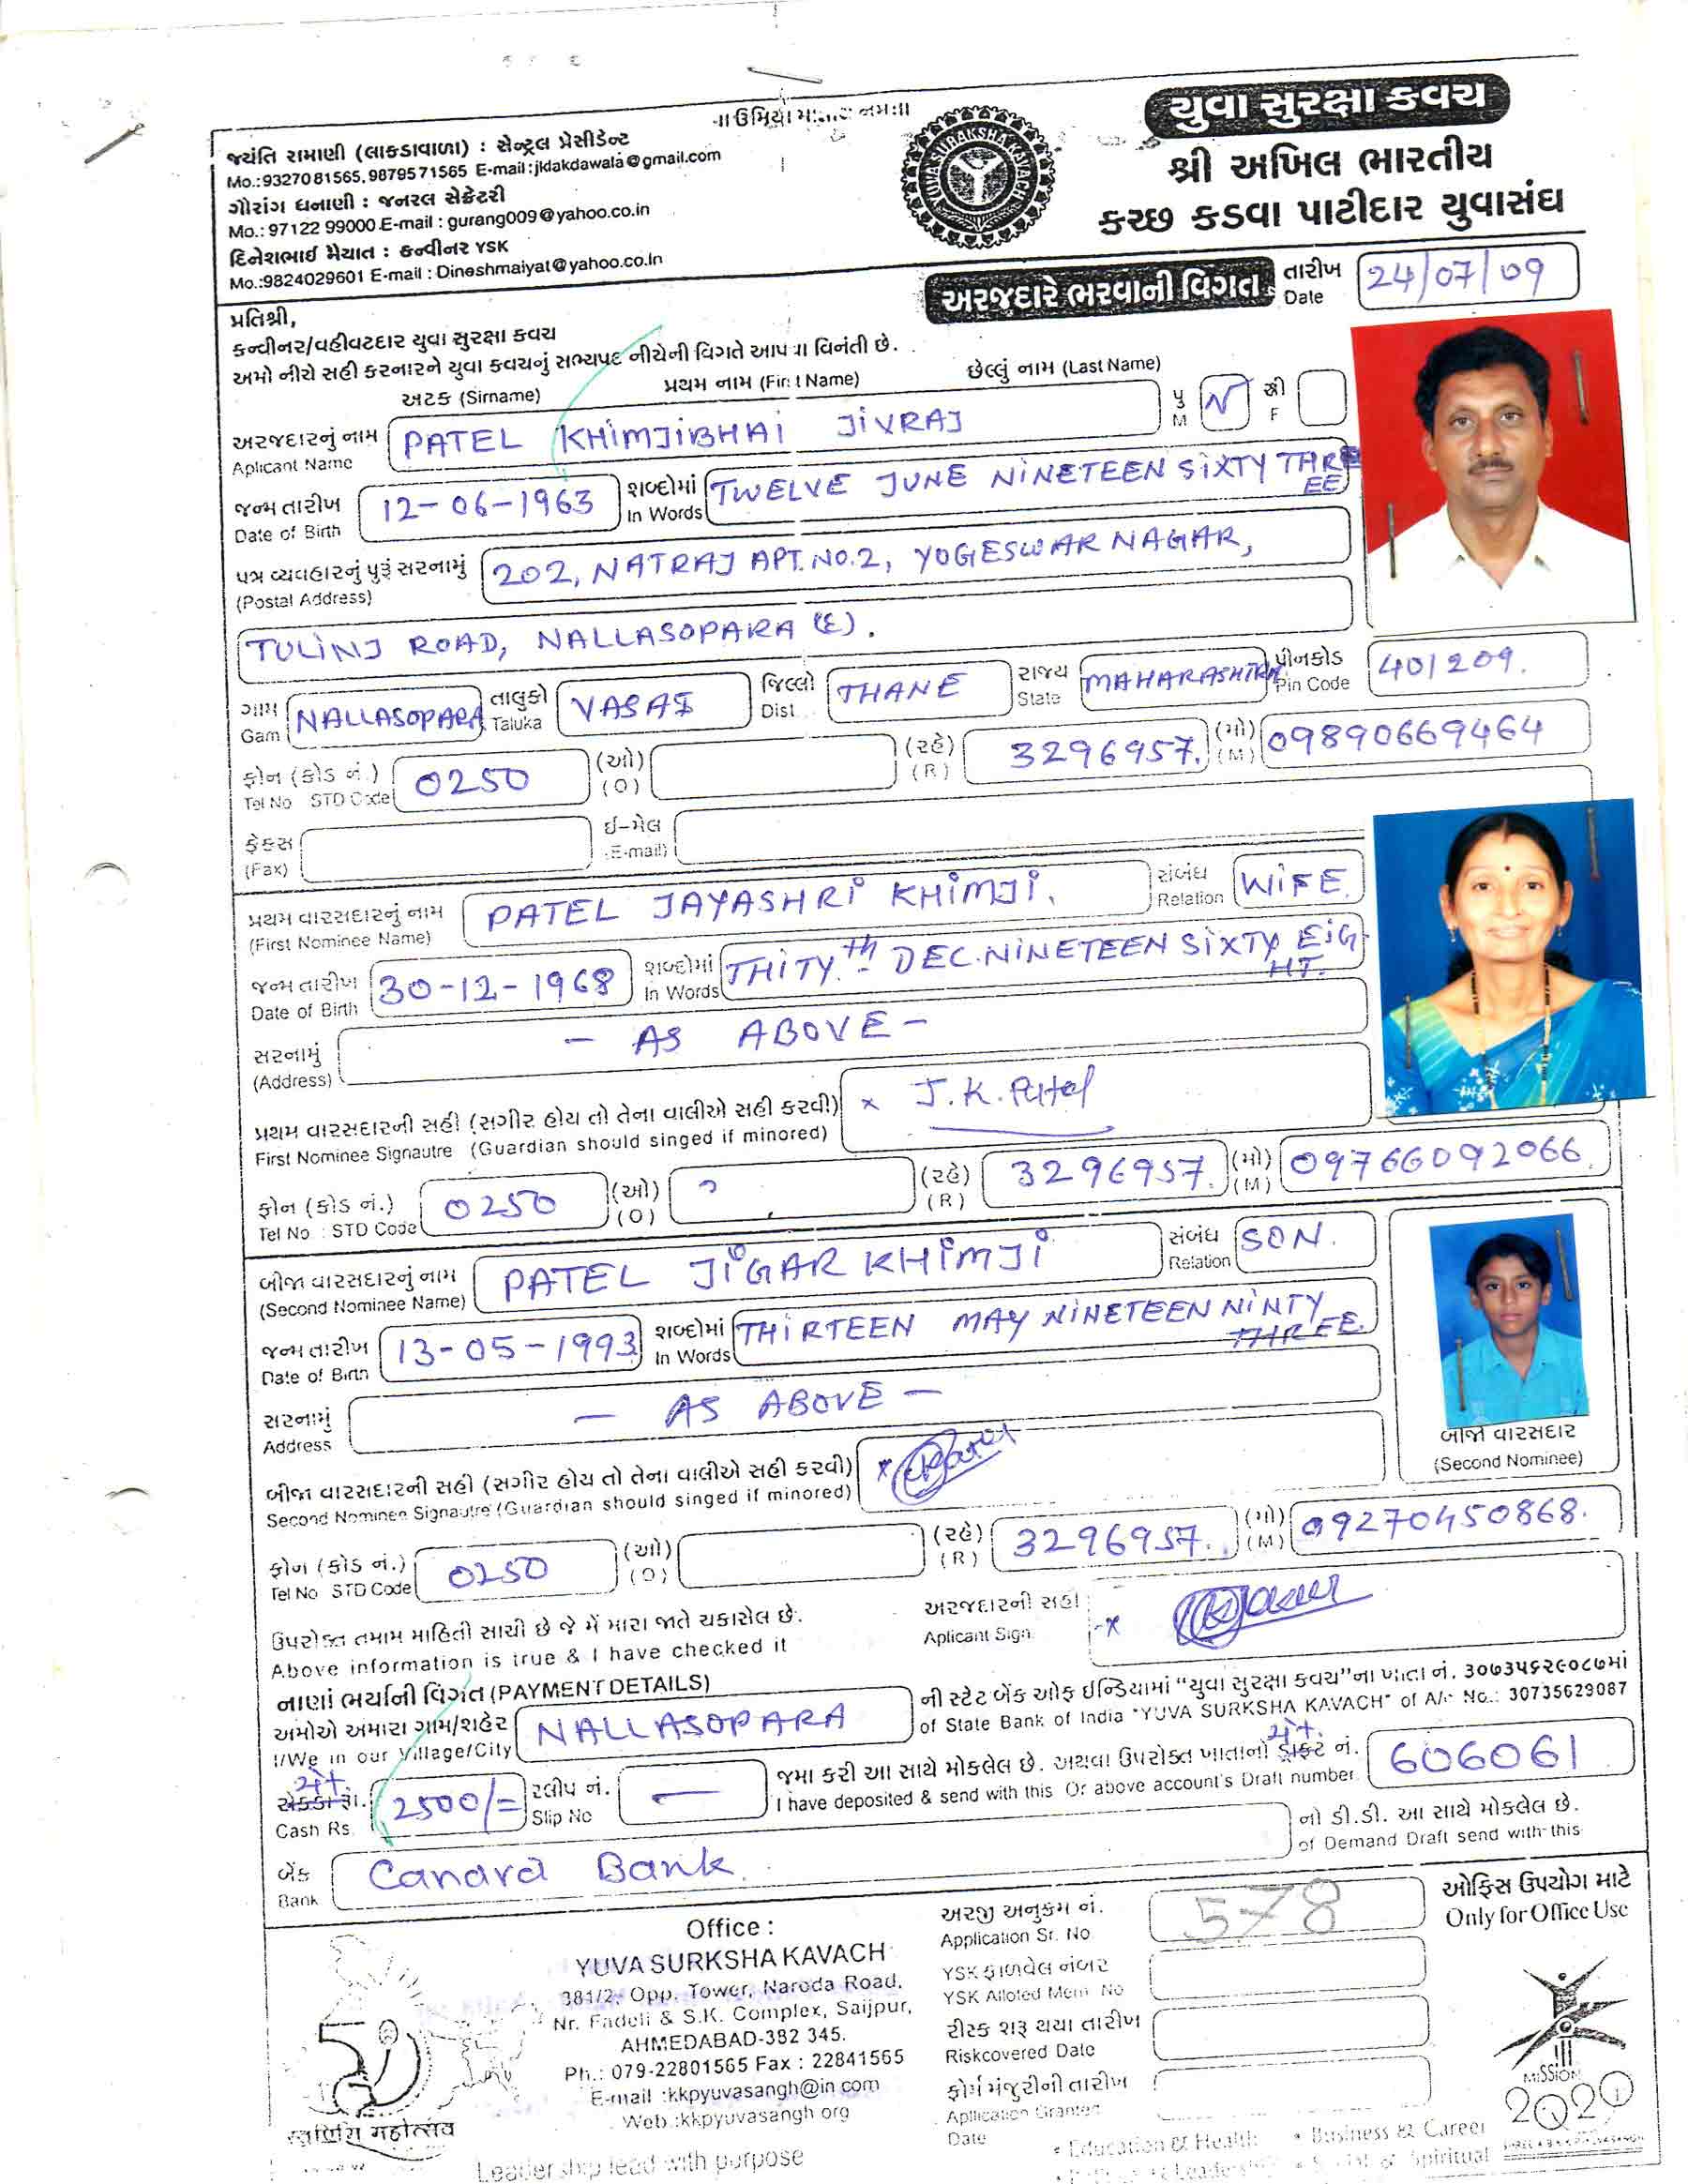 ॥ ઉમિયા માતાય નમઃ ॥
જયંતિ રામાણી (લાકડાવાળા) : સેન્ટ્રલ પ્રેસીડેન્ટ
Mo.:9327081565, 9879571565 E-mail:jkdakdawala@gmail.com
ગૌરાંગ ધનાણી : જનરલ સેક્રેટરી
Mo.: 97122 99000 E-mail : gurang009@yahoo.co.in
દિનેશભાઈ મૈયાત : કન્વીનર YSK
Mo.:9824029601 E-mail : Dineshmaiyat@yahoo.co.in
YUVA SURAKSHA KAVACH
યુવા સુરક્ષા કવચ
શ્રી અખિલ ભારતીય
કચ્છ કડવા પાટીદાર યુવાસંઘ
અરજદારે ભરવાની વિગત
તારીખ Date 24/07/09
પ્રતિશ્રી,
કન્વીનર/વહીવટદાર યુવા સુરક્ષા કવચ
અમો નીચે સહી કરનારને યુવા કવચનું સભ્યપદ નીચેની વિગતે આપવા વિનંતી છે.
અટક (Sirname) પ્રથમ નામ (First Name) છેલ્લું નામ (Last Name)
અરજદારનું નામ Aplicant Name PATEL KHIMJIBHAI JIVRAJ પુ M સ્રી F
જન્મ તારીખ Date of Birth 12-06-1963 શબ્દોમાં In Words TWELVE JUNE NINETEEN SIXTY THREE
પત્ર વ્યવહારનું પુરૂં સરનામું (Postal Address) 202, NATRAJ APT. NO.2, YOGESWAR NAGAR,
TULINJ ROAD, NALLASOPARA (E).
ગામ Gam NALLASOPARA તાલુકો Taluka VASAI જિલ્લો Dist THANE રાજ્ય State MAHARASHTRA પીનકોડ Pin Code 401209.
ફોન (કોડ નં.) Tel No STD Code 0250 (ઓ) (O) (રહે) (R) 3296957. (મો) (M) 09890669464
ફેક્સ (Fax) ઈ-મેલ (E-mail)
પ્રથમ વારસદારનું નામ (First Nominee Name) PATEL JAYASHRI KHIMJI. સંબંધ Relation WIFE.
જન્મ તારીખ Date of Birth 30-12-1968 શબ્દોમાં In Words THITYth - DEC. NINETEEN SIXTY EIGHT.
સરનામું (Address) - AS ABOVE -
પ્રથમ વારસદારની સહી (સગીર હોય તો તેના વાલીએ સહી કરવી) × J.K. Patel
First Nominee Signautre (Guardian should singed if minored)
ફોન (કોડ નં.) Tel No : STD Code 0250 (ઓ) (O) (રહે) (R) 3296957. (મો) (M) 09766092066.
બીજા વારસદારનું નામ (Second Nominee Name) PATEL JIGAR KHIMJI સંબંધ Relation SON.
જન્મ તારીખ Date of Birth 13-05-1993 શબ્દોમાં In Words THIRTEEN MAY NINETEEN NINTY THREE.
સરનામું Address - AS ABOVE -
બીજો વારસદાર
(Second Nominee)
બીજા વારસદારની સહી (સગીર હોય તો તેના વાલીએ સહી કરવી) ×
Second Nominee Signautre (Guardian should singed if minored)
ફોન (કોડ નં.) Tel No STD Code 0250 (ઓ) (O) (રહે) (R) 3296957. (મો) (M) 09270450868.
ઉપરોક્ત તમામ માહિતી સાચી છે જે મેં મારા જાતે ચકાસેલ છે. અરજદારની સહી
Above information is true & I have checked it Aplicant Sign ×
નાણાં ભર્યાની વિગત (PAYMENT DETAILS)
અમોએ અમારા ગામ/શહેર NALLASOPARA ની સ્ટેટ બેંક ઓફ ઈન્ડિયામાં "યુવા સુરક્ષા કવચ"ના ખાતા નં. ૩૦૭૩૫૬૨૯૦૮૭માં
I/We in our Village/City of State Bank of India "YUVA SURKSHA KAVACH" of A/c No.: 30735629087
રોકડા રૂા. Cash Rs. 2500/= સ્લીપ નં. Slip No — જમા કરી આ સાથે મોકલેલ છે. અથવા ઉપરોક્ત ખાતાનો ડ્રાફ્ટ નં. 606061
I have deposited & send with this Or above account's Draft number
બેંક Bank Canara Bank નો ડી.ડી. આ સાથે મોકલેલ છે.
of Demand Draft send with this
Office :
YUVA SURKSHA KAVACH
381/2, Opp. Tower, Naroda Road,
Nr. Fadeli & S.K. Complex, Saijpur,
AHMEDABAD-382 345.
Ph.: 079-22801565 Fax : 22841565
E-mail :kkpyuvasangh@in com
Web :kkpyuvasangh org
અરજી અનુક્રમ નં. Application Sr. No. 578
YSK ફાળવેલ નંબર YSK Alloted Mem No
રીસ્ક શરૂ થયા તારીખ Riskcovered Date
ફોર્મ મંજુરીની તારીખ Apllication Granted Date
ઓફિસ ઉપયોગ માટે
Only for Office Use
50
મહોત્સવ
MISSION
2020
Leadership lead with purpose
• Education & Health • Business & Career
Spiritual